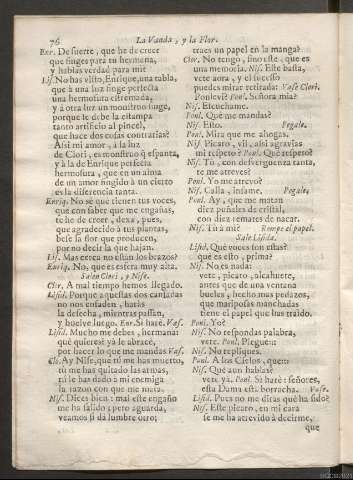 76 La Vanda, y la Flor.
Enr. De suerte, que he de creer
que finges para tu hermena,
y hablas verdad para mi?
Lis. No has visto, Enrique, una tabla,
que à una luz finge perfecta
una hermosura estremada,
y à otra luz un monstruo finge,
porque le debe la estampa
tanto artificio al pincèl,
que hace dos cosas contrarias?
Assi mi amor, à la luz
de Clori, es monstro q̃ espanta,
y à la de Enrique perfecta
hermosura, que en un alma
de un amor fingido à un cierto
es la diferencia tanta.
Enriq. No sè que tienen tus voces,
que con saber que me engañas,
te he de creer, dexa, pues,
que agradecido à tus plantas,
bese la flor que producen,
por no decir la que hajan.
Lis. Mas cerca no estàn los brazos?
Enriq. No, que es esfera muy alta.
Salen Clori, y Nise.
Clor. A mal tiempo hemos llegado.
Lisid. Porque aquellas dos cansadas
no nos enfaden, haràs
la desecha, mientras passan,
y buelve luego. Enr. Si harè. Vas.
Lisid. Mucho me debes, hermana:
què quieres? yà le abracè,
por hacer lo que me mandas Vas.
Clo. Ay Nise, que tù me has muerto,
tù me has quitado las armas,
tù le has dado à mi enemiga
la razon con que me mata.
Nis. Dices bien: mal este engaño
me ha salido; pero aguarda,
veamos si dà lumbre otro;
traes un papel en la manga?
Clor. No tengo, sino este, que es
una memoria. Nis. Este basta,
vete aora, y el sucesso
puedes mirar retirada: Vase Clori.
Ponleví? Ponl. Señora mia?
Nis. Escuchame.
Ponl. Què me mandas?
Nis. Esto. Pegale.
Ponl. Mira que me ahogas.
Nis. Picaro, vil, assi agravias
mi respeto? Ponl. Què respeto?
Nis. Tù, con desverguenza tanta,
te me atreves?
Ponl. Yo me atrevo?
Nis. Calla, infame. Pegale.
Ponl. Ay, que me matan
diez peñales de cristal,
con diez remates de nacar.
Nis. Tù à mì? Rompe el papel.
Sale Lisida.
Lisid. Què voces son estas?
que es esto, prima?
Nis. No es nada:
vete, picaro, alcahuete,
antes que de una ventana
bueles, y hecho mas pedazos,
que mariposas manchadas
tiene el papel que has traìdo.
Ponl. Yo?
Nis. No respondas palabra,
vete. Ponl. Plegue:::
Nis. No repliques.
Ponl. A los Cielos, que:::
Nis. Què aun hablas?
vete yà. Ponl. Si harè: señores,
esta Dama està borracha. Vase.
Lisid. Pues no me diràs què ha sido?
Nis. Este picaro, en mi cara
se me ha atrevido à decirme,
que